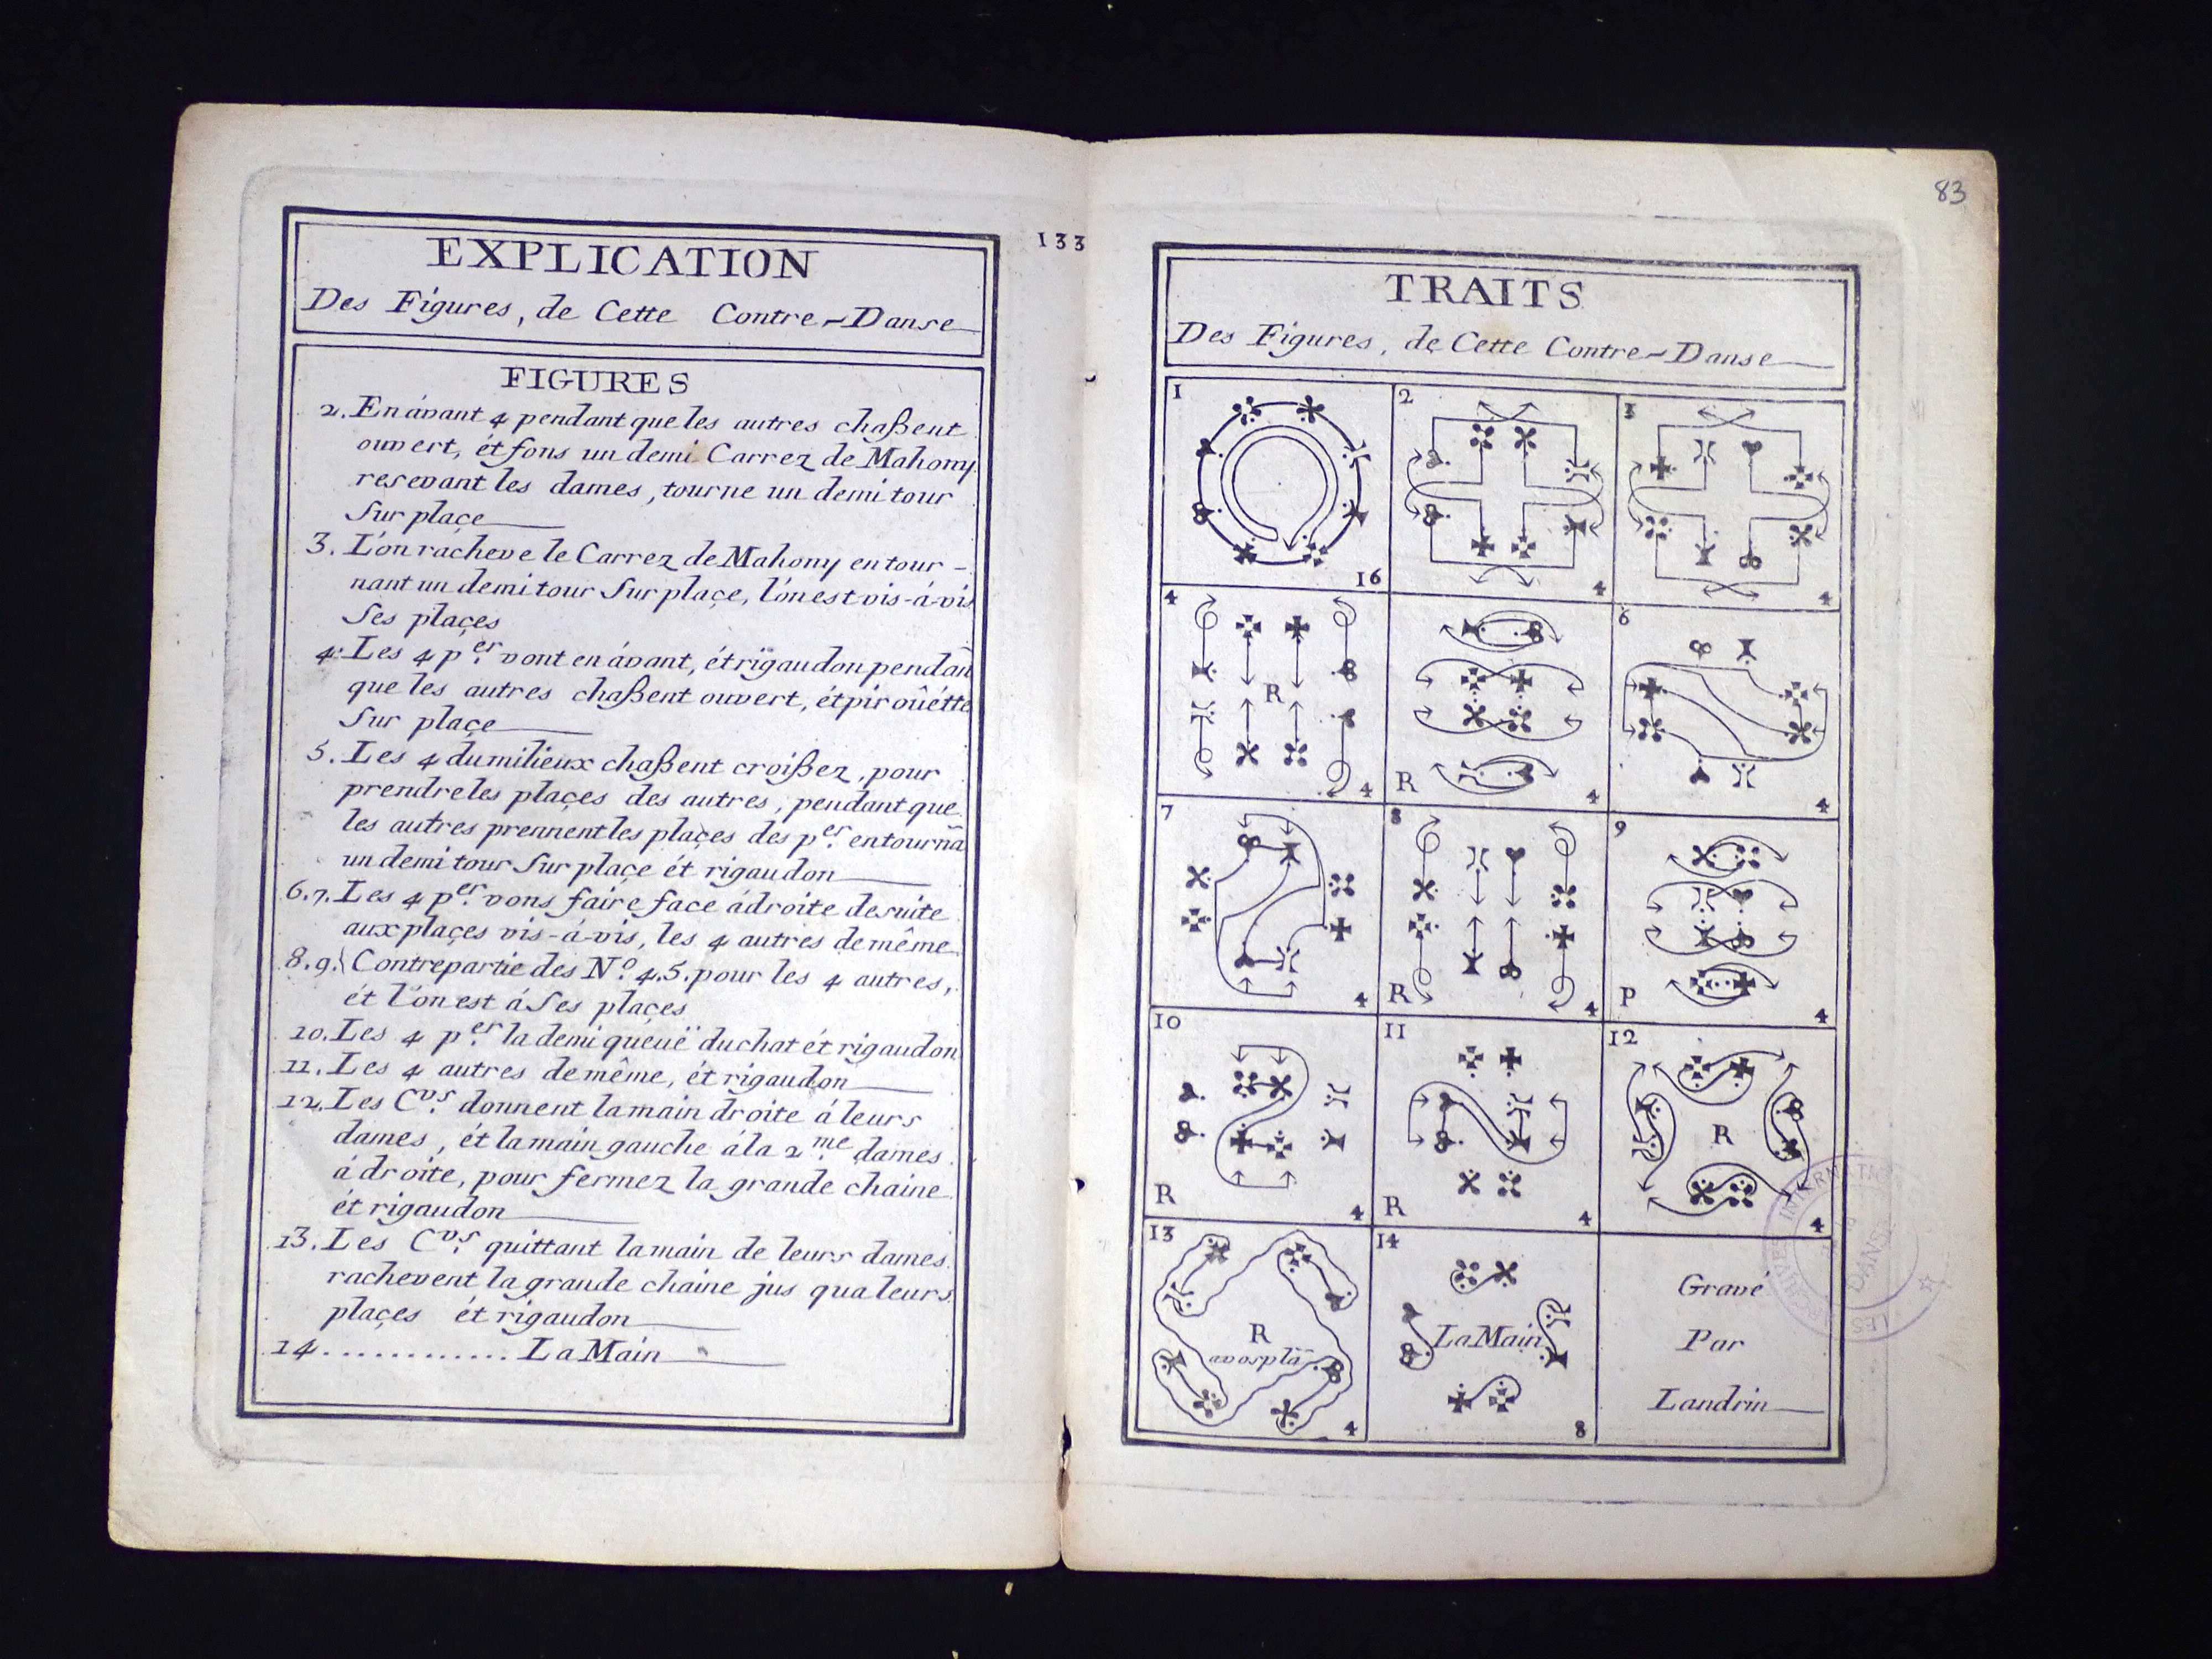 EXPLICATION
Des Figures, de Cette Contre-Danse
FIGURES
2. En ávant 4 pendant que les autres chaßent
ouvert, ét fons un demi Carrez de Mahony
resevant les dames, tourne un demi tour
Sur plaçe
3. L'on racheve le Carrez de Mahony en tour-
nant un demi tour Sur plaçe, l'ón est vis-á-vis
Ses plaçes
4. Les 4 p.er vont en ávant, ét rigaudon pendãn
que les autres chaßent ouvert, ét pirouétte
Sur plaçe
5. Les 4 du milieux chaßent croißez, pour
prendre les plaçes des autres, pendant que
les autres prennent les plaçes des p.er en tournã
un demi tour Sur plaçe ét rigaudon
6.7. Les 4 p.er vons faire face ádroite desuite
aux plaçes vis-á-vis, les 4 autres de même
8.9. Contrepartie des N.o 4.5. pour les 4 autres,
ét l'ón est á Ses plaçes
10. Les 4 p.er la demi queuë du chat ét rigaudon
11. Les 4 autres de même, ét rigaudon
12. Les C.vs donnent la main droite á leurs
dames, ét la main gauche ála 2.me dames
á droite, pour fermez la grande chaine
ét rigaudon
13. Les C.vs quittant la main de leurs dames
rachevent la grande chaine jus qua leurs
plaçes ét rigaudon
14............ La Main
133
83
TRAITS
Des Figures, de Cette Contre-Danse
1
16
2
4
3
4
4
R
4
R
4
6
4
7
4
8
R
4
9
P
4
10
R
4
11
R
4
12
R
4
13
R
avosplã
4
14
La Main
8
Gravé
Par
Landrin
LES ARCHIVES INTERNATIO
DE LA
DANSE